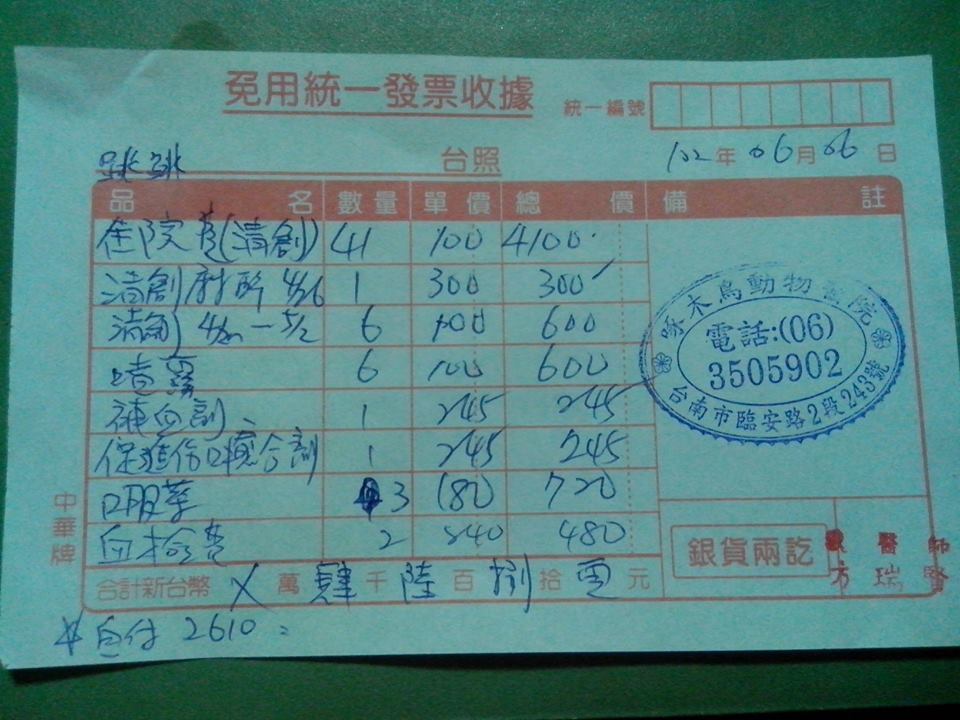 免用統一發票收據
統一編號
跳跳 台照 102年 06月 06日
品名 數量 單價 總價 備註
住院費(清創) 41 100 4100
清創 4/26 1 300 300
清創 4/30 一 5/2 6 100 600
6 100 600
補血劑 1 245 245
保進傷口癒合劑 1 245 245
口服藥 3 180 720
血檢查 2 240 480
合計新台幣 X 萬 肆 千 陸 百 捌 拾 零 元
自付 2610
中華牌
啄木鳥動物醫院
電話:(06)
3505902
台南市臨安路2段243號
銀貨兩訖
獸醫師
方瑞賢